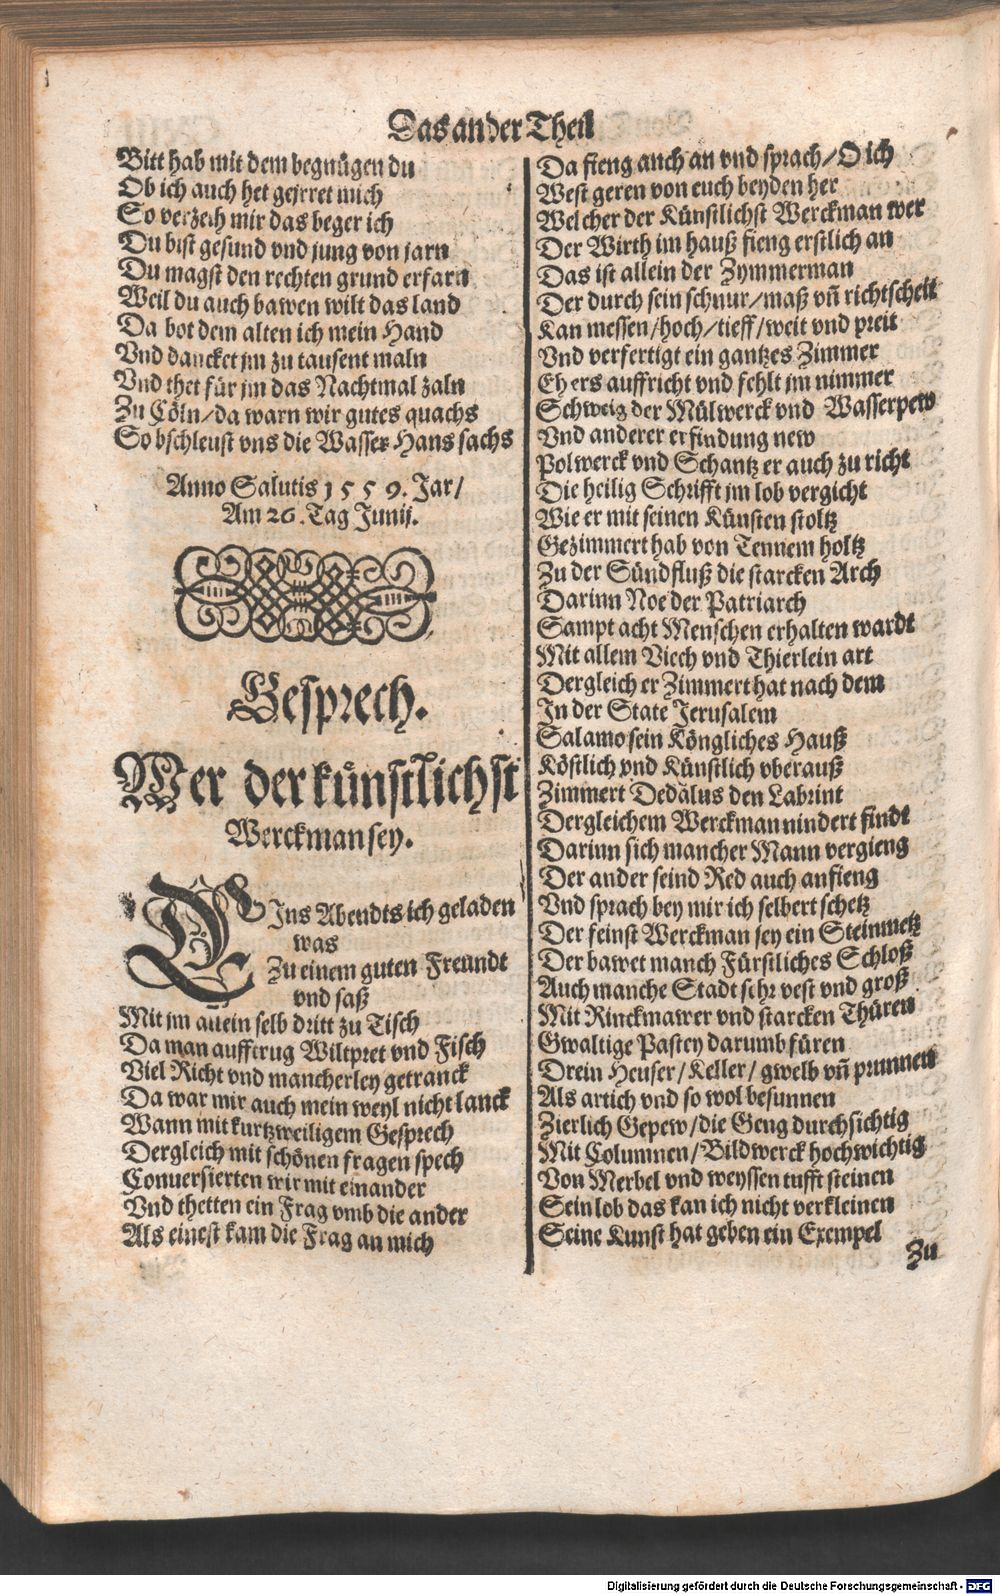 Das ander Theil
Bitt hab mit dem begnügen du
Ob ich auch het gejrret mich
So verzeih mir das beger ich
Du bist gesund vnd jung von jarn
Du magst den rechten grund erfarn
Weil du auch bawen wilt das land
Da bot dem alten ich mein Hand
Vnd dancket jm zu tausent maln
Vnd thet für jm das Nachtmal zaln
Zu Cöln/da warn wir gutes quachs
So bschleust vns die Wasser Hans sachs
Anno Salutis 1559. Jar/
Am 26. Tag Junij.
Gesprech.
Wer der künstlichst
Werckman sey.
EIns Abendts ich geladen
was
Zu einem guten Freundt
vnd saß
Mit jm allein selb dritt zu Tisch
Da man aufftrug Wiltpret vnd Fisch
Viel Richt vnd mancherley getranck
Da war mir auch mein weyl nicht lanck
Wann mit kurtzweiligem Gesprech
Dergleich mit schönen fragen spech
Conuersierten wir mit einander
Vnd thetten ein Frag vmb die ander
Als einest kam die Frag an mich
Da fieng auch an vnd sprach/O ich
West geren von euch beyden her
Welcher der Künstlichst Werckman wer
Der Wirth im hauß fieng erstlich an
Das ist allein der Zymmerman
Der durch sein schnur/maß vñ richtscheit
Kan messen/hoch/tieff/weit vnd preit
Vnd verfertigt ein gantzes Zimmer
Eh ers auffricht vnd fehlt jm nimmer
Schweig der Mülwerck vnd Wasserpew
Vnd anderer erfindung new
Polwerck vnd Schantz er auch zu richt
Die heilig Schrifft jm lob vergicht
Wie er mit seinen Künsten stoltz
Gezimmert hab von Tennem holtz
Zu der Sündfluß die starcken Arch
Darinn Noe der Patriarch
Sampt acht Menschen erhalten wardt
Mit allem Viech vnd Thierlein art
Dergleich er Zimmert hat nach dem
In der State Jerusalem
Salamo sein Köngliches Hauß
Köstlich vnd Künstlich vberauß
Zimmert Dedalus den Labrint
Dergleichem Werckman nindert findt
Darinn sich mancher Mann vergieng
Der ander seind Red auch anfieng
Vnd sprach bey mir ich selbert schetz
Der feinst Werckman sey ein Steinmetz
Der bawet manch Fürstliches Schloß
Auch manche Stadt sehr vest vnd groß
Mit Rinckmawer vnd starcken Thüren
Gwaltige Pastey darumb füren
Drein Heuser/Keller/gwelb vñ prunnen
Als artich vnd so wol besunnen
Zierlich Gepew/die Geng durchsichtig
Mit Columnen/Bildwerck hochwichtig
Von Merbel vnd weyssen tufft steinen
Sein lob das kan ich nicht verkleinen
Seine Kunst hat geben ein Exempel
Zu
Digitalisierung gefördert durch die Deutsche Forschungsgemeinschaft - DFG